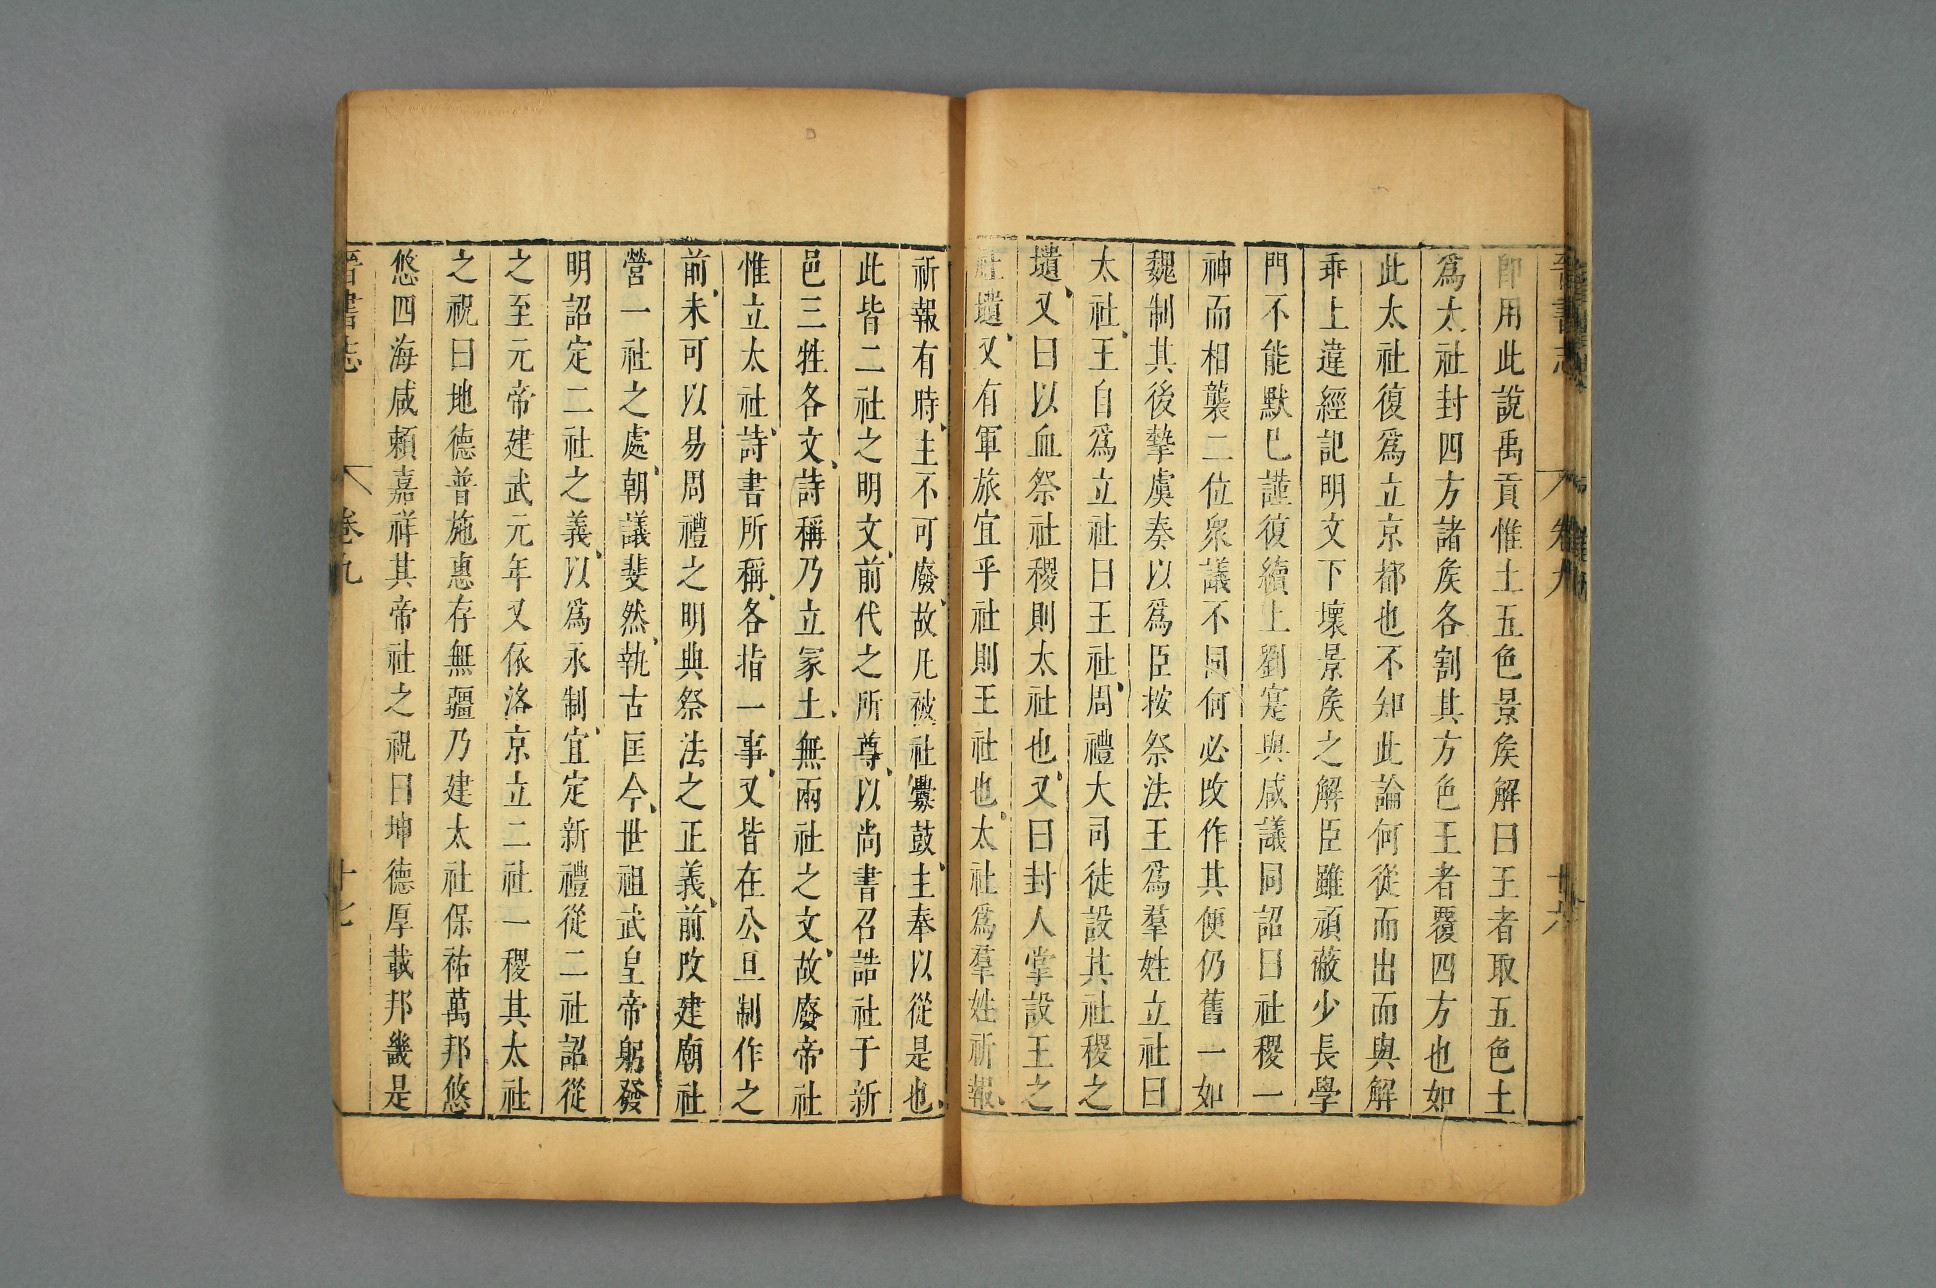 即用此說禹貢惟土五色景矦解曰王者取五色土
爲太社封四方諸矦各割其方色王者覆四方也如
此太社復爲立京都也不知此論何從而出而與解
乖上違經記明文下壞景矦之解臣雖頑蔽少長學
門不能默已謹復續上劉寔與咸議同詔曰社稷一
神而相襲二位衆議不同何必改作其便仍舊一如
魏制其後摯虞奏以爲臣按祭法王爲羣姓立社曰
太社王自爲立社曰王社周禮大司徒設其社稷之
壝又曰以血祭社稷則太社也又曰封人掌設王之
社壝又有軍旅宜乎社則王社也太社爲羣姓祈報
祈報有時主不可廢故凡被社釁鼓主奉以從是也
此皆二社之明文前代之所尊以尚書召誥社于新
邑三牲各文詩稱乃立冢土無兩社之文故廢帝社
惟立太社詩書所稱各指一事又皆在公旦制作之
前未可以易周禮之明典祭法之正義前改建廟社
營一社之處朝議斐然執古匡今世祖武皇帝躬發
明詔定二社之義以爲永制宜定新禮從二社詔從
之至元帝建武元年又依洛京立二社一稷其太社
之祝曰地德普施惠存無疆乃建太社保祐萬邦悠
悠四海咸賴嘉祥其帝社之祝曰坤德厚載邦畿是
晉書志 卷九 十七